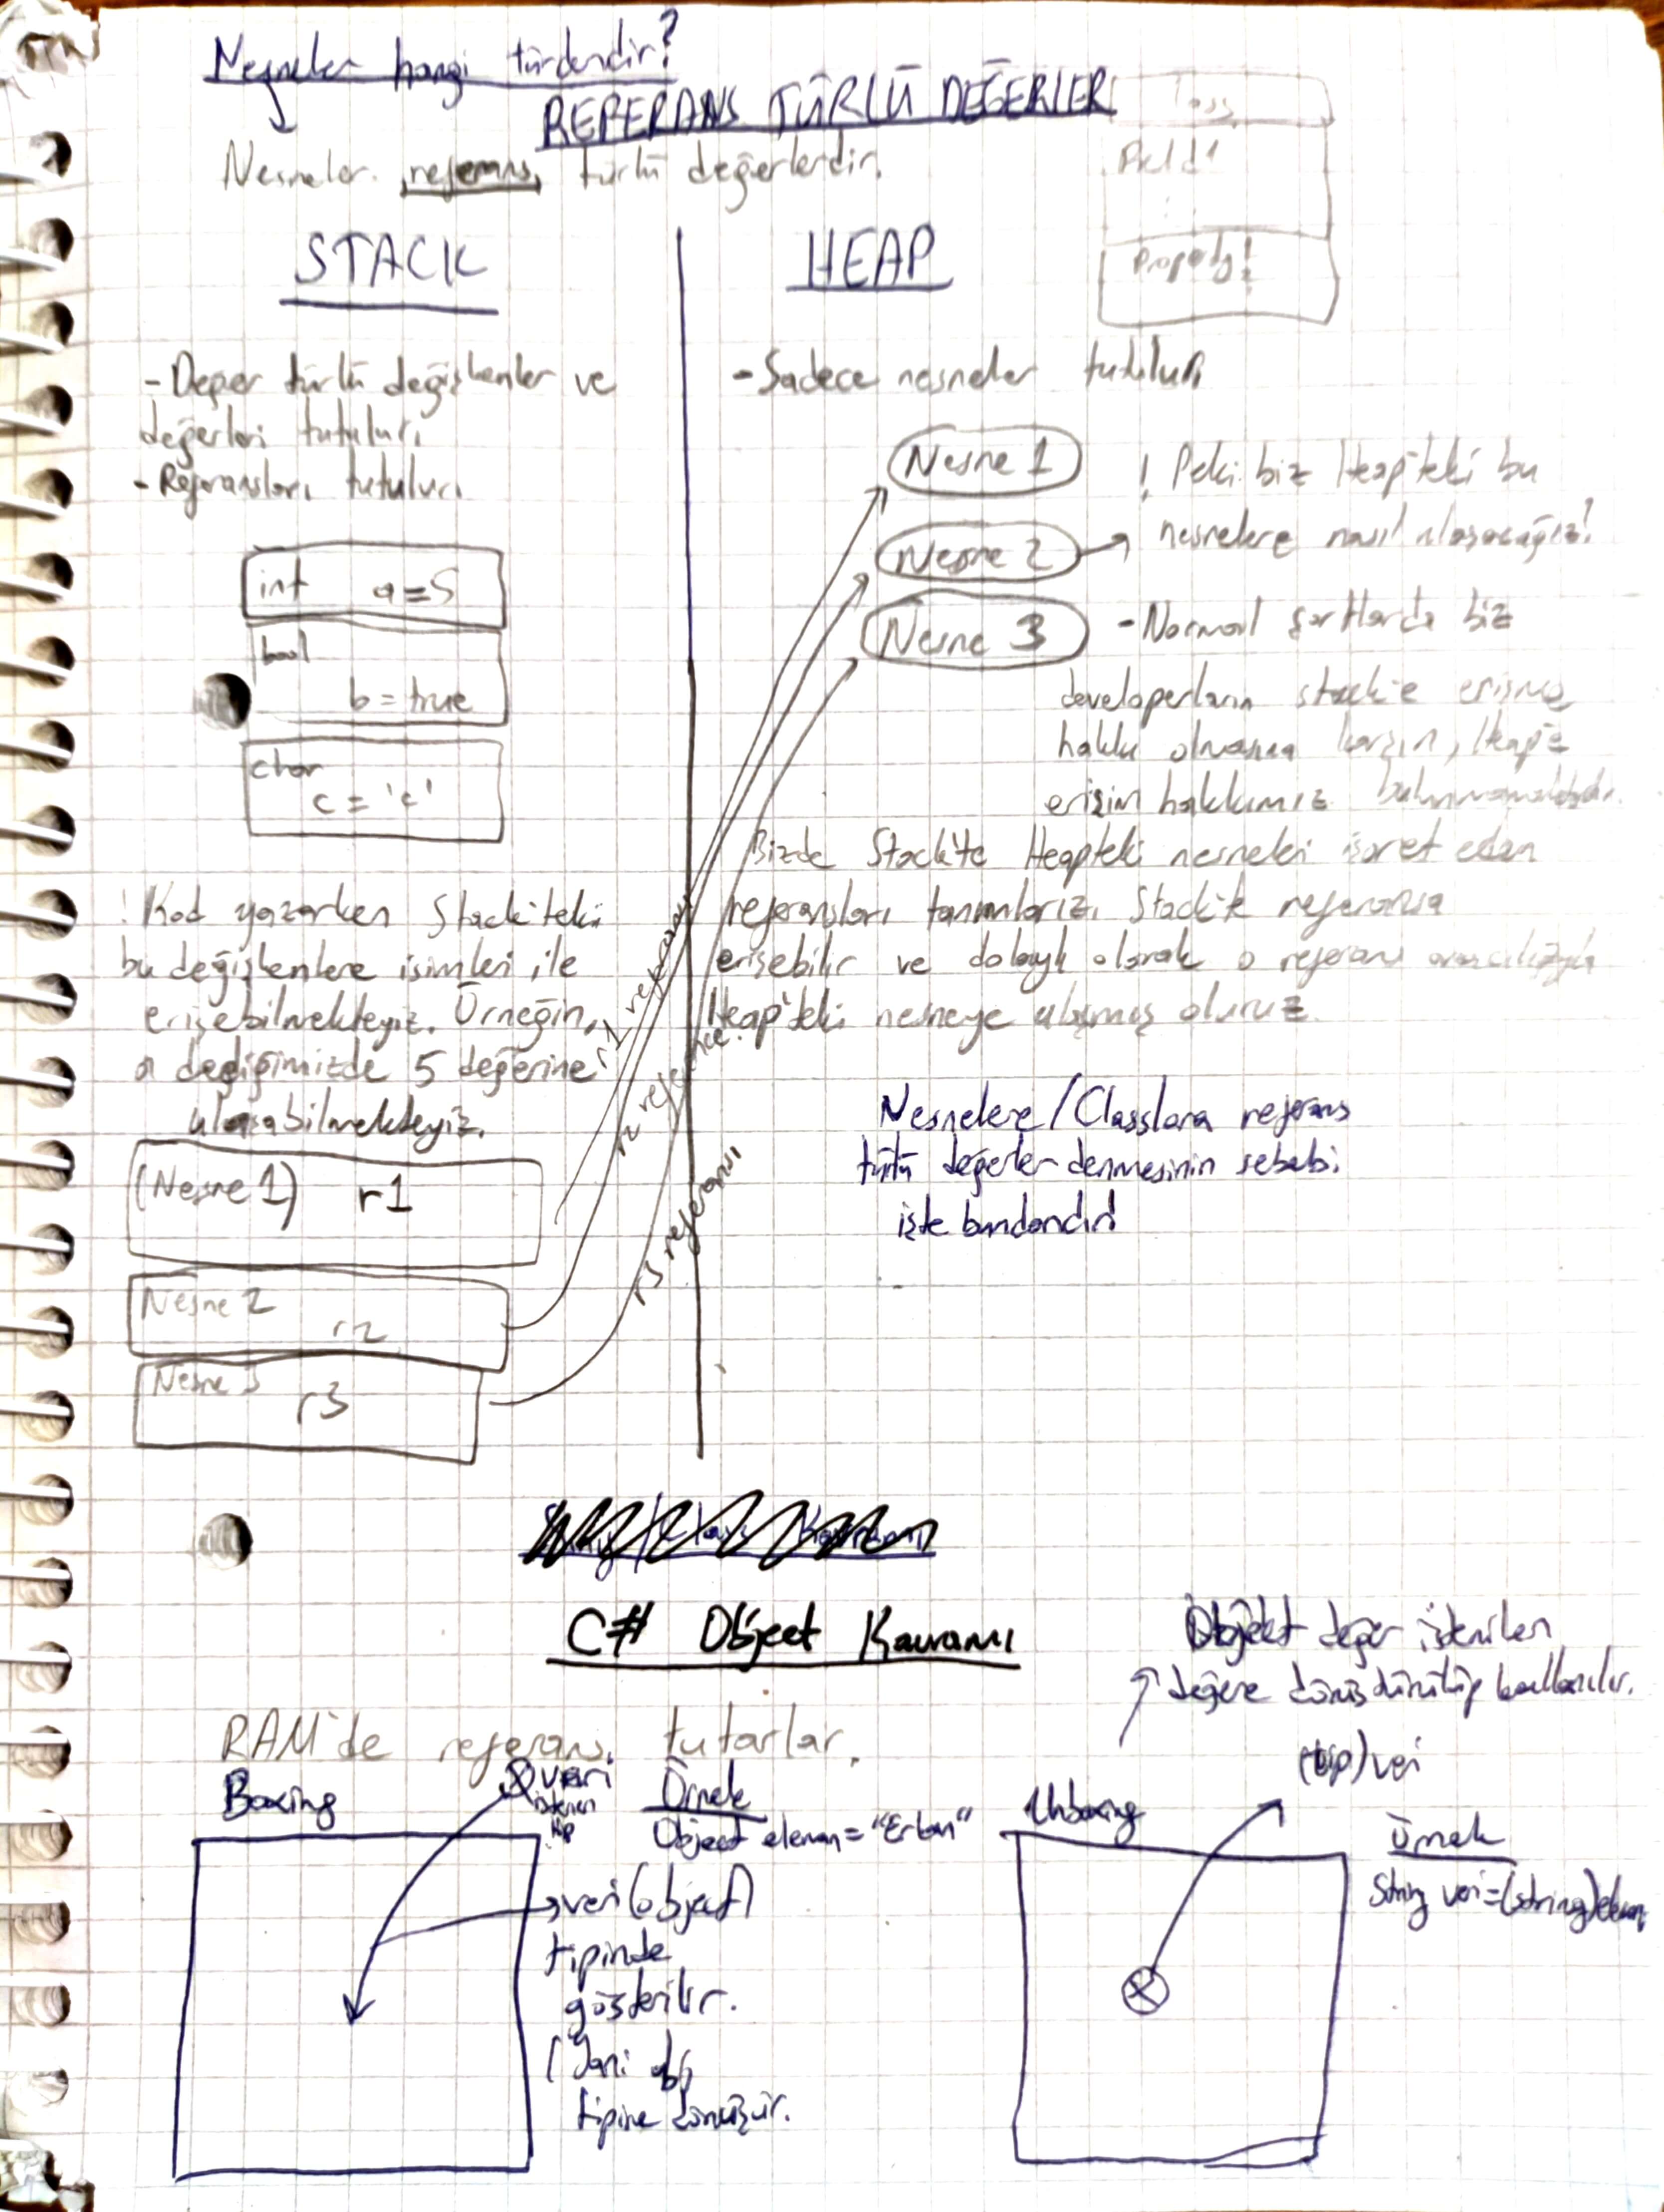 Nesneler hangi türdendir?
REFERANS TÜRLÜ DEĞERLER
Nesneler referans türlü değerlerdir.
Field1
Property1
STACK
- Değer türlü değişkenler ve
değerleri tutulur.
- Referansları tutulur.
int a=5
bool
b = true
char
c = 'c'
! Kod yazarken Stack'teki
bu değişkenlere isimleri ile
erişebilmekteyiz. Örneğin,
a dediğimizde 5 değerine
ulaşabilmekteyiz.
(Nesne 1) r1
Nesne 2
r2
Nesne 3
r3
r1 referansı
r2 reference
r3 referansı
HEAP
- Sadece nesneler tutulur.
Nesne 1
Nesne 2
Nesne 3
! Peki biz Heap'teki bu
nesnelere nasıl ulaşacağız!
- Normal şartlarda biz
developerların stack'e erişme
hakkı olmasına karşın, Heap'e
erişim hakkımız bulunmamaktadır.
Bizde Stack'te Heapteki nesneleri işaret eden
referansları tanımlarız. Stack'te referansa
erişebilir ve dolaylı olarak o referans aracılığıyla
Heap'teki nesneye ulaşmış oluruz.
Nesnelere/Classlara referans
türlü değerler denmesinin sebebi
işte bundandır!
C# Object Kavramı
RAM'de referans tutarlar.
Boxing
veri
istenen
tip
Örnek
Object eleman = "Ertan"
veri (object)
tipinde
gösterilir.
(Yani obj
tipine dönüşür.
Object değer istenilen
değere dönüştürülüp kullanılır.
(tip) veri
Unboxing
Örnek
String veri = (string) eleman